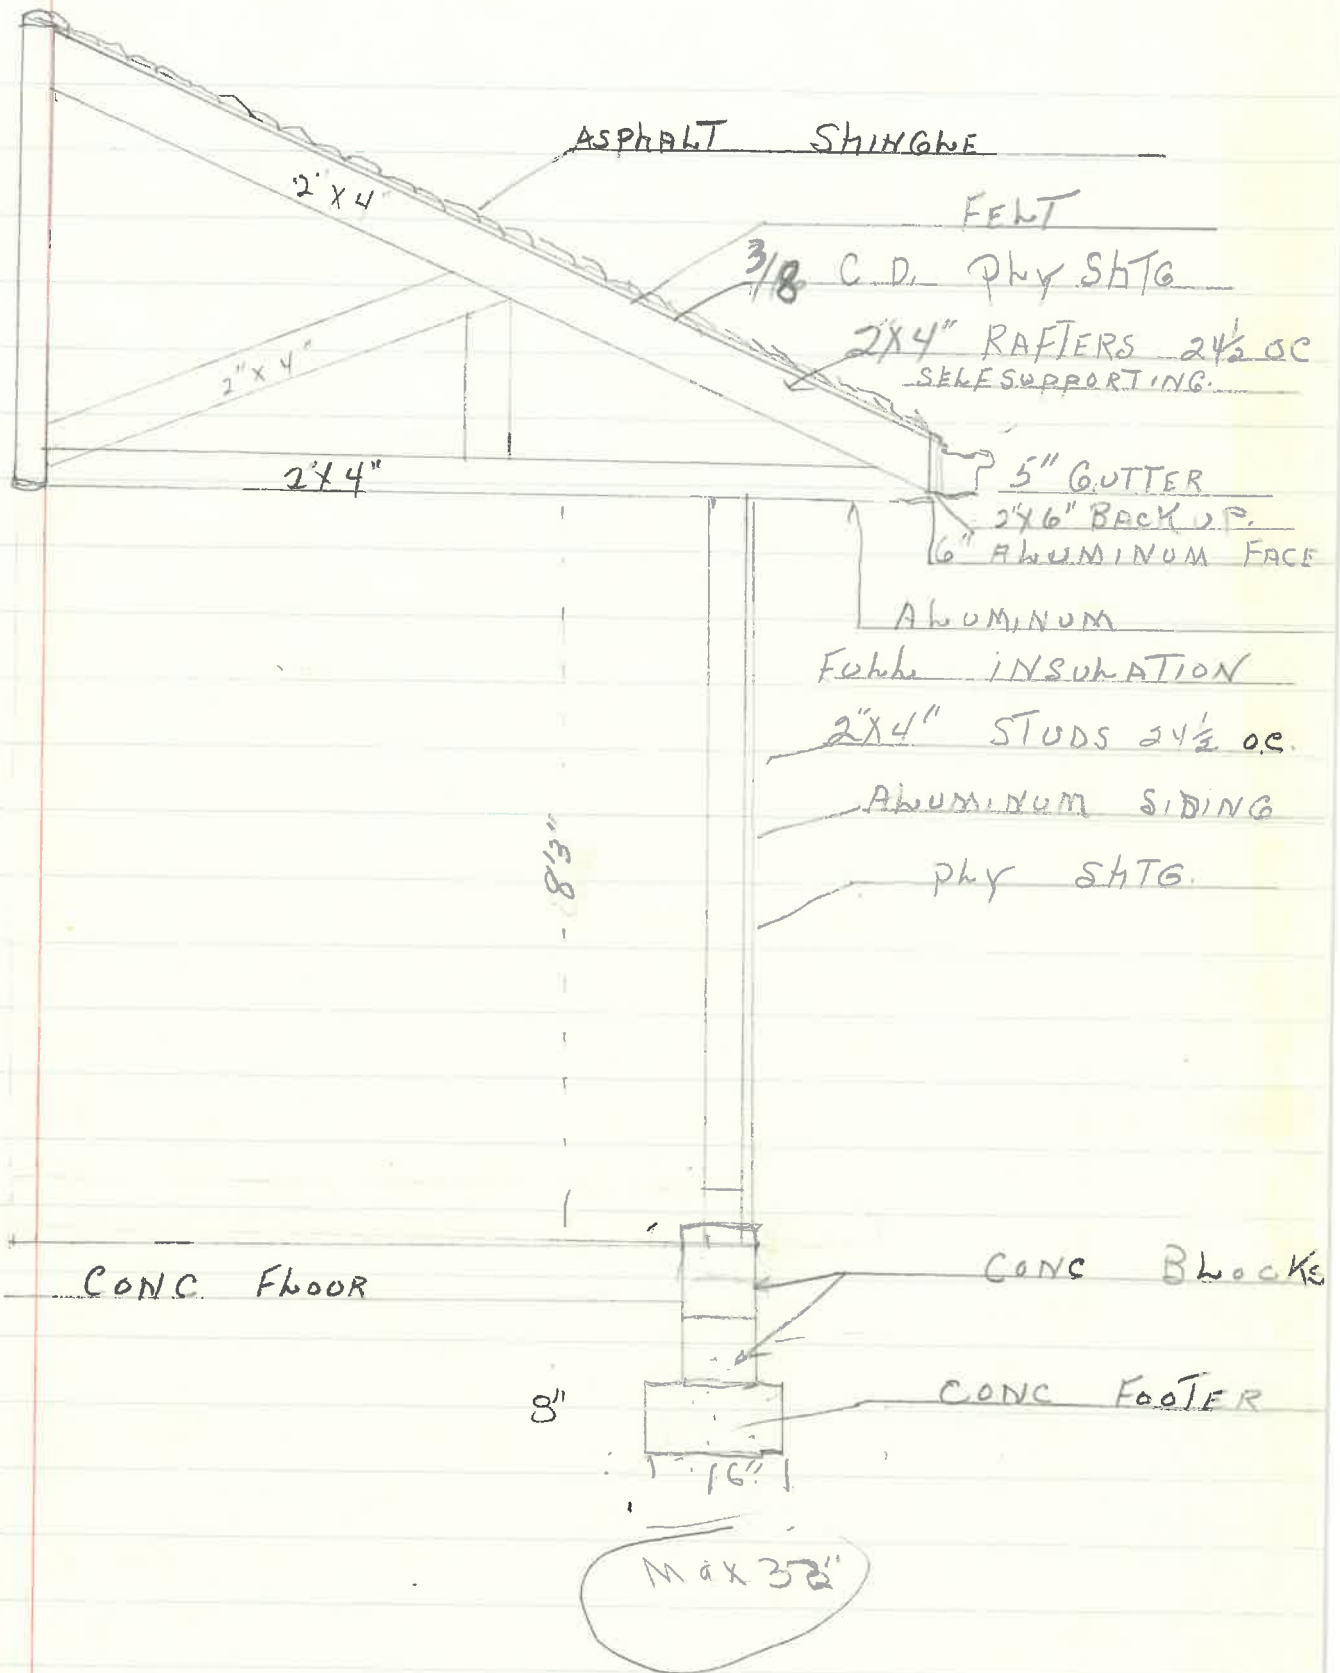 ASPHALT SHINGLE
2" X 4"
FELT
3/8 C.D. PLY SHTG
2"X4" RAFTERS 24½ OC
SELF SUPPORTING.
2" X 4"
2"X4"
5" GUTTER
2"X6" BACK UP.
6" ALUMINUM FACE
ALUMINUM
FULL INSULATION
2"X4" STUDS 24½ o.c.
ALUMINUM SIDING
8'3"
PLY SHTG.
CONC. FLOOR
CONC BLOCKS
8"
CONC FOOTER
16"
Max